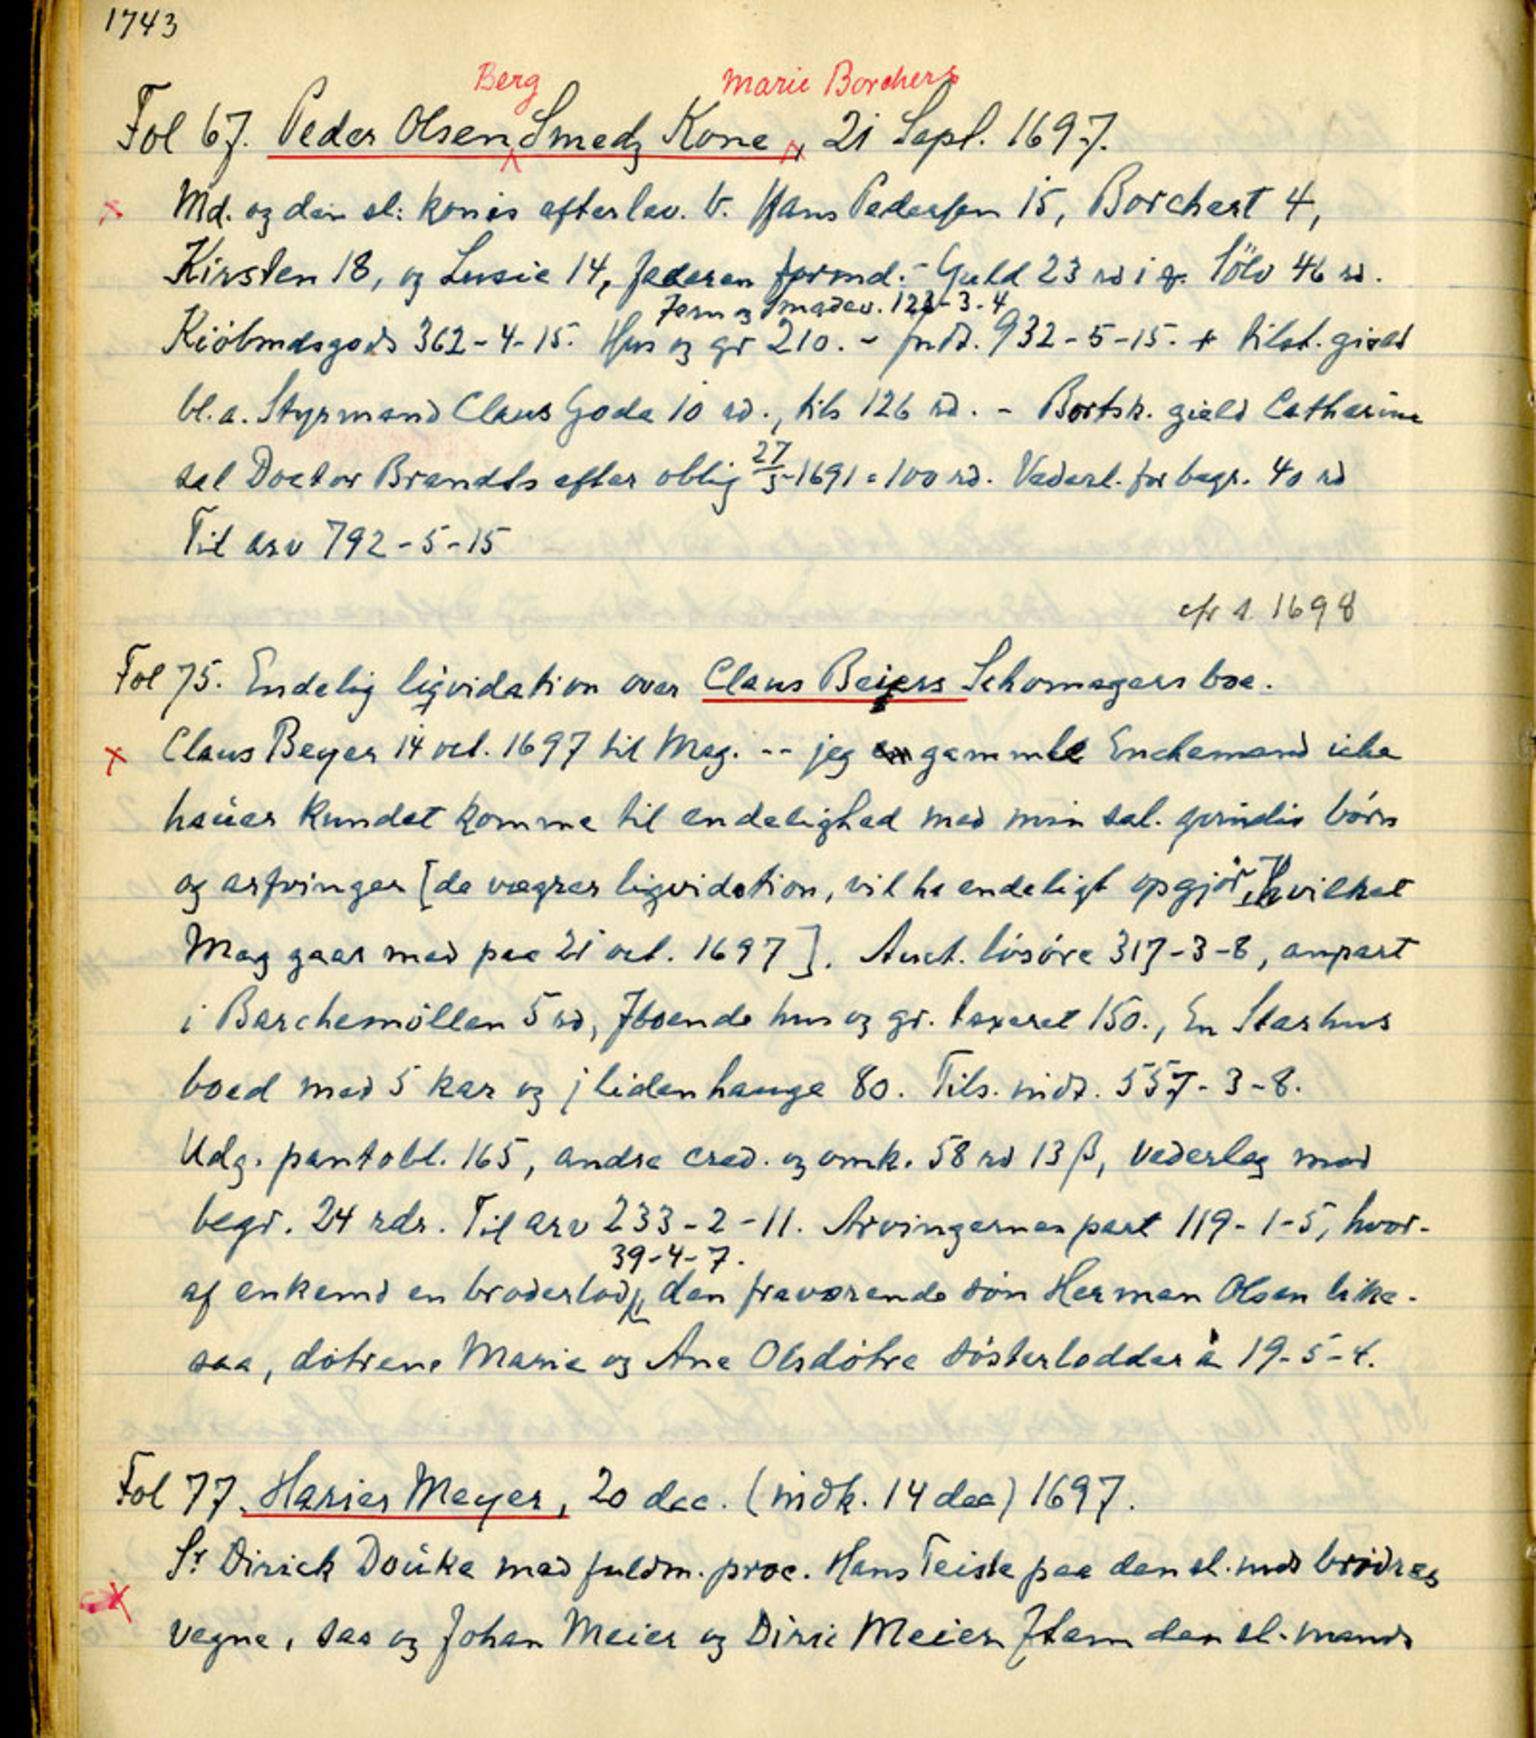 1743
Berg Marie Borchers
Fol 67. Peder Olsen Smedz Kone, 21 Sept. 1697.
x Md. og den sl: konis efterlev. b. Hans Pedersen 15, Borchert 4,
Kirsten 18, og Lusie 14, faderen formd. - Guld 23 rd i q. Sölv 46 rd.
Jern og Smaadev. 123-3-4
Kiöbmdsgods 362-4-15. Hus og gr 210. - Indt. 932-5-15. + tilst. gield
bl.a. Styrmand Claus Gode 10 rd., tils 126 rd. - Bortsk. gield Catharine
sal Doctor Brandts efter oblig 27/3-1691 = 100 rd. Vederl. for begr. 40 rd
Til arv 792-5-15
cfr s. 1698
Fol 75. Endelig liqvidation over Claus Beiers Schomagers boe.
x Claus Beyer 14 oct. 1697 til Mag. -- jeg gammle Enchemand iche
haüer kundet komme til endelighed med min sal. qvindis börn
og arfvinger [de vægrer liqvidation, vil ha endeligt opgjör, hvilket
Mag gaar med paa 21 oct. 1697]. Auct. lösöre 317-3-8, anpart
i Barchemöllen 5 rd, Iboende hus og gr. taxeret 150., En Starhus
boed med 5 kar og j liden hauge 80. Tils. indt. 557-3-8.
Udg. pantobl. 165, andre cred. og omk. 58 rd 13 β, vederlag mod
begr. 24 rdr. Til arv 233-2-11. Arvingernes part 119-1-5, hvor-
39-4-7.
af enkemd en broderlod, den fraværende sön Herman Olsen like-
saa, dötrene Marie og Ane Olsdötre sösterlodder à 19-5-4.
Fol 77. Harier Meyer, 20 dec. (indk. 14 dec) 1697.
Sr Dirick Doüke med fuldm. proc. Hans Teiste paa den sl. mds brödres
x vegne, saa og Johan Meier og Diric Meier Item den sl. mands